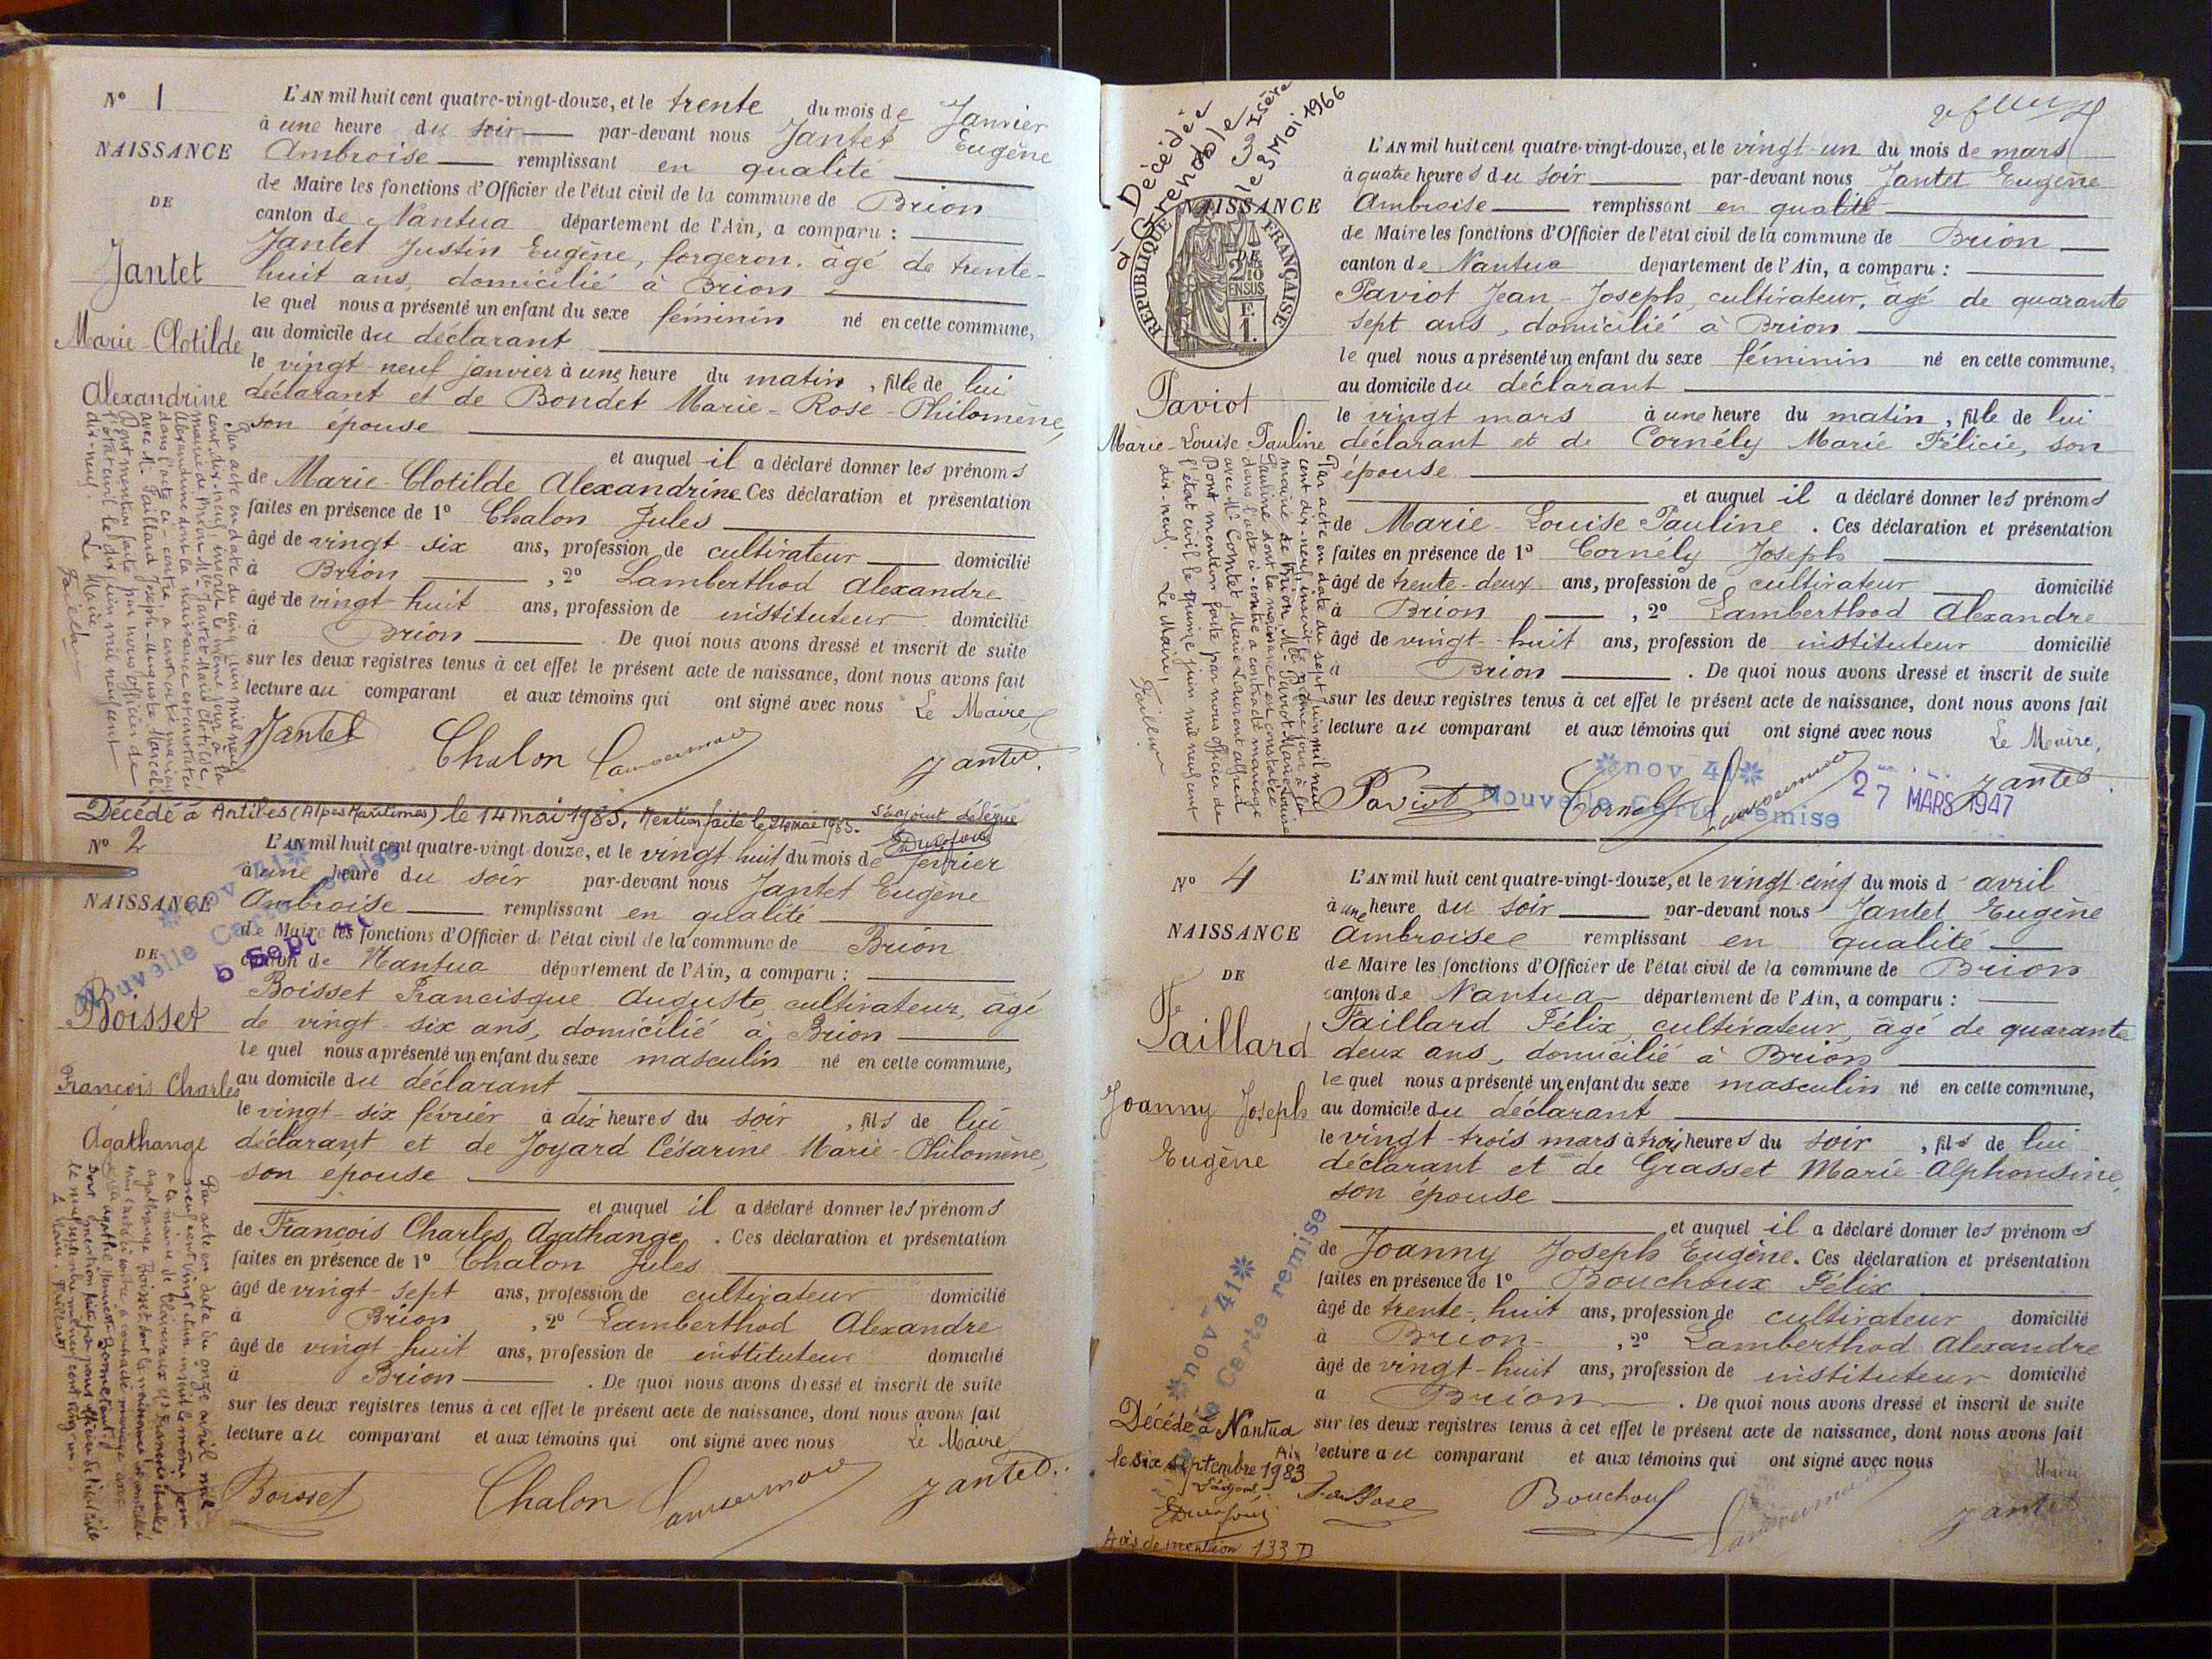 N° 1
NAISSANCE
DE
Jantet
Marie-Clotilde
Alexandrine
L'AN mil huit cent quatre-vingt-douze, et le trente du mois de Janvier
à une heure du soir par-devant nous Jantet Eugène
Ambroise remplissant en qualité
de Maire les fonctions d'Officier de l'état civil de la commune de Brion
canton de Nantua département de l'Ain, a comparu :
Jantet Justin Eugène, forgeron, âgé de trente-
huit ans, domicilié à Brion
le quel nous a présenté un enfant du sexe féminin né en cette commune,
au domicile du déclarant
le vingt-neuf janvier à une heure du matin, fille de lui
déclarant et de Bondet Marie-Rose-Philomène,
son épouse
et auquel il a déclaré donner les prénoms
de Marie-Clotilde Alexandrine Ces déclaration et présentation
faites en présence de 1° Chalon Jules
âgé de vingt-six ans, profession de cultivateur domicilié
à Brion, 2° Lamberthod Alexandre
âgé de vingt-huit ans, profession de instituteur domicilié
à Brion. De quoi nous avons dressé et inscrit de suite
sur les deux registres tenus à cet effet le présent acte de naissance, dont nous avons fait
lecture au comparant et aux témoins qui ont signé avec nous Le Maire
Jantet Chalon Jantet.
Par acte en date du cinq juin mil neuf
cent dix-neuf, inscrit le même jour à la
mairie de Brion, Mlle Jantet Marie Clotilde
Alexandrine dont la naissance est constatée
dans l'acte ci-contre, a contracté mariage
avec Mr Taillard Joseph-Auguste-Marcel
Dont mention faite par nous officier de
l'état civil le dix juin mil neuf cent
dix-neuf. Le Maire
Décédé à Antibes (Alpes Maritimes) le 14 mai 1985. Mention faite le mai 1985. L'adjoint délégué
N° 2
NAISSANCE
DE
Boisset
François Charles
Agathange
nov 41
Nouvelle Carte remise
5 Sept
L'AN mil huit cent quatre-vingt-douze, et le vingt-huit du mois de février
à une heure du soir par-devant nous Jantet Eugène
Ambroise remplissant en qualité
de Maire les fonctions d'Officier de l'état civil de la commune de Brion
canton de Nantua département de l'Ain, a comparu :
Boisset Francisque Auguste, cultivateur, âgé
de vingt-six ans, domicilié à Brion
le quel nous a présenté un enfant du sexe masculin né en cette commune,
au domicile du déclarant
le vingt-six février à dix heures du soir, fils de lui
déclarant et de Joyard Césarine-Marie-Philomène,
son epouse
et auquel il a déclaré donner les prénoms
de François Charles Agathange. Ces déclaration et présentation
faites en présence de 1° Chalon Jules
âgé de vingt-sept ans, profession de cultivateur domicilié
à Brion, 2° Lamberthod Alexandre
âgé de vingt huit ans, profession de instituteur domicilié
à Brion. De quoi nous avons dressé et inscrit de suite
sur les deux registres tenus à cet effet le présent acte de naissance, dont nous avons fait
lecture au comparant et aux témoins qui ont signé avec nous Le Maire
Boisset Chalon Jantet.
Par acte en date du onze avril mil
neuf cent vingt et un inscrit le même jour
à la mairie de François Charles
Agathange Boisset dont la naissance est constatée
a contracté mariage avec
Dont mention faite par nous officier de l'état civil
Le Maire
Décédée
à Grenoble Isère
le 3 Mai 1966
NAISSANCE
DE
REPUBLIQUE FRANÇAISE
2/10 EN SUS
F. 1.
Paviot
Marie-Louise Pauline
L'AN mil huit cent quatre-vingt-douze, et le vingt-un du mois de mars
à quatre heures du soir par-devant nous Jantet Eugène
Ambroise remplissant en qualité
de Maire les fonctions d'Officier de l'état civil de la commune de Brion
canton de Nantua département de l'Ain, a comparu :
Paviot Jean-Joseph, cultivateur, âgé de quarante
sept ans, domicilié à Brion
le quel nous a présenté un enfant du sexe féminin né en cette commune,
au domicile du déclarant
le vingt mars à une heure du matin, fille de lui
déclarant et de Cornély Marie Félicie, son
épouse
et auquel il a déclaré donner les prénoms
de Marie-Louise Pauline. Ces déclaration et présentation
faites en présence de 1° Cornély Joseph
âgé de trente-deux ans, profession de cultivateur domicilié
à Brion, 2° Lamberthod Alexandre
âgé de vingt-huit ans, profession de instituteur domicilié
à Brion. De quoi nous avons dressé et inscrit de suite
sur les deux registres tenus à cet effet le présent acte de naissance, dont nous avons fait
lecture au comparant et aux témoins qui ont signé avec nous Le Maire,
Paviot Cornély Jantet
nov 41
Nouvelle Carte remise
27 MARS 1947
Par acte en date du sept juin mil neuf
cent dix-neuf, inscrit le même jour à la
mairie de Brion, Mlle Paviot Marie Louise
Pauline dont la naissance est constatée
dans l'acte ci-contre a contracté mariage
avec Mr Comtet Marie Laurent Alfred
Dont mention faite par nous officier de
l'état civil le quinze juin mil neuf cent
dix-neuf. Le Maire,
N° 4
NAISSANCE
DE
Taillard
Joanny Joseph
Eugène
L'AN mil huit cent quatre-vingt-douze, et le vingt-cinq du mois d avril
à une heure du soir par-devant nous Jantet Eugène
Ambroise remplissant en qualité
de Maire les fonctions d'Officier de l'état civil de la commune de Brion
canton de Nantua département de l'Ain, a comparu :
Taillard Félix, cultivateur, âgé de quarante
deux ans, domicilié à Brion
le quel nous a présenté un enfant du sexe masculin né en cette commune,
au domicile du déclarant
le vingt-trois mars à trois heures du soir, fils de lui
déclarant et de Grasset Marie-Alphonsine,
son épouse
et auquel il a déclaré donner les prénoms
de Joanny Joseph Eugène. Ces déclaration et présentation
faites en présence de 1° Bouchoux Félix
âgé de trente-huit ans, profession de cultivateur domicilié
à Brion, 2° Lamberthod Alexandre
âgé de vingt-huit ans, profession de instituteur domicilié
à Brion. De quoi nous avons dressé et inscrit de suite
sur les deux registres tenus à cet effet le présent acte de naissance, dont nous avons fait
lecture au comparant et aux témoins qui ont signé avec nous
Bouchoux Jantet
nov 41
Nouvelle Carte remise
Décédé à Nantua
Ain
le six septembre 1983
L'adjoint,
Avis de mention 133 D